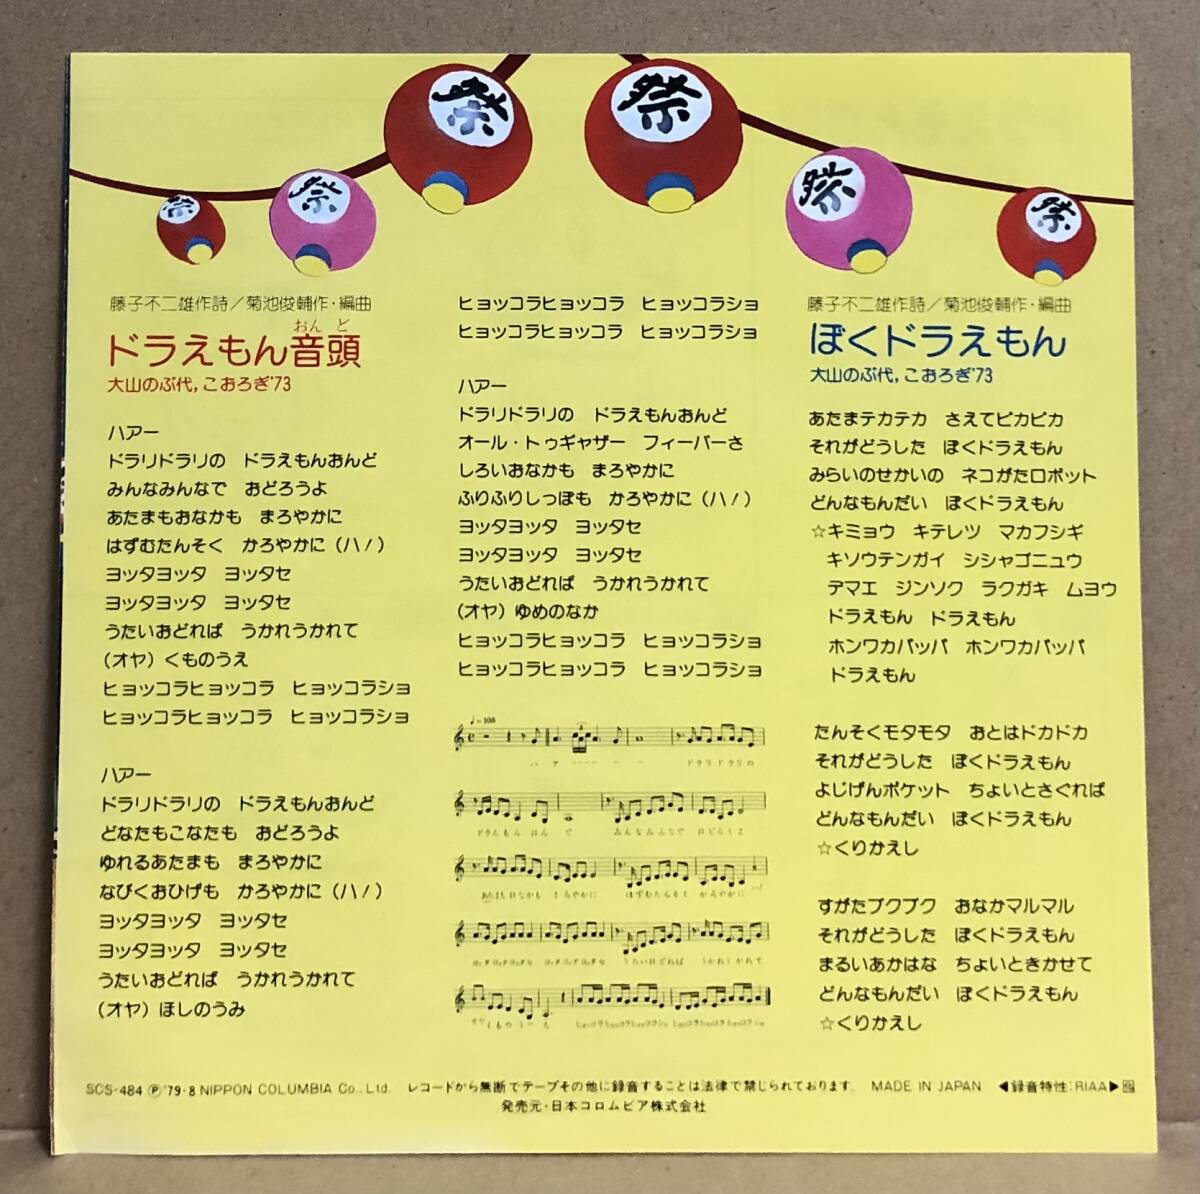 祭
祭
祭
祭
祭
祭
藤子不二雄作詩／菊池俊輔作・編曲
おんど
ドラえもん音頭
大山のぶ代，こおろぎ'73
ハアー
ドラリドラリの　ドラえもんおんど
みんなみんなで　おどろうよ
あたまもおなかも　まろやかに
はずむたんそく　かろやかに（ハ！）
ヨッタヨッタ　ヨッタセ
ヨッタヨッタ　ヨッタセ
うたいおどれば　うかれうかれて
（オヤ）くものうえ
ヒョッコラヒョッコラ　ヒョッコラショ
ヒョッコラヒョッコラ　ヒョッコラショ
ハアー
ドラリドラリの　ドラえもんおんど
どなたもこなたも　おどろうよ
ゆれるあたまも　まろやかに
なびくおひげも　かろやかに（ハ！）
ヨッタヨッタ　ヨッタセ
ヨッタヨッタ　ヨッタセ
うたいおどれば　うかれうかれて
（オヤ）ほしのうみ
ヒョッコラヒョッコラ　ヒョッコラショ
ヒョッコラヒョッコラ　ヒョッコラショ
ハアー
ドラリドラリの　ドラえもんおんど
オール・トゥギャザー　フィーバーさ
しろいおなかも　まろやかに
ふりふりしっぽも　かろやかに（ハ！）
ヨッタヨッタ　ヨッタセ
ヨッタヨッタ　ヨッタセ
うたいおどれば　うかれうかれて
（オヤ）ゆめのなか
ヒョッコラヒョッコラ　ヒョッコラショ
ヒョッコラヒョッコラ　ヒョッコラショ
♩=108
ハ ア ー ー ー ー ー ー　ドラリドラリの
ドラえもん おん ど　みんなみんなで おどろうよ
あたまも おなかも まろやかに　はずむたんそく かろやかに ハ！
ヨッタ ヨッタ ヨッタセ ヨッタ ヨッタ ヨッタセ うたいおどれば うかれうかれて
ヒョッコラヒョッコラヒョッコラショ ヒョッコラヒョッコラヒョッコラショ
藤子不二雄作詩／菊池俊輔作・編曲
ぼくドラえもん
大山のぶ代，こおろぎ'73
あたまテカテカ　さえてピカピカ
それがどうした　ぼくドラえもん
みらいのせかいの　ネコがたロボット
どんなもんだい　ぼくドラえもん
☆キミョウ　キテレツ　マカフシギ
キソウテンガイ　シシャゴニュウ
デマエ　ジンソク　ラクガキ　ムヨウ
ドラえもん　ドラえもん
ホンワカパッパ　ホンワカパッパ
ドラえもん
たんそくモタモタ　おとはドカドカ
それがどうした　ぼくドラえもん
よじげんポケット　ちょいとさぐれば
どんなもんだい　ぼくドラえもん
☆くりかえし
すがたプクプク　おなかマルマル
それがどうした　ぼくドラえもん
まるいあかはな　ちょいときかせて
どんなもんだい　ぼくドラえもん
☆くりかえし
SCS-484 Ⓟ'79・8 NIPPON COLUMBIA Co., Ltd.　レコードから無断でテープその他に録音することは法律で禁じられております。　MADE IN JAPAN　◀録音特性：RIAA▶
発売元・日本コロムビア株式会社